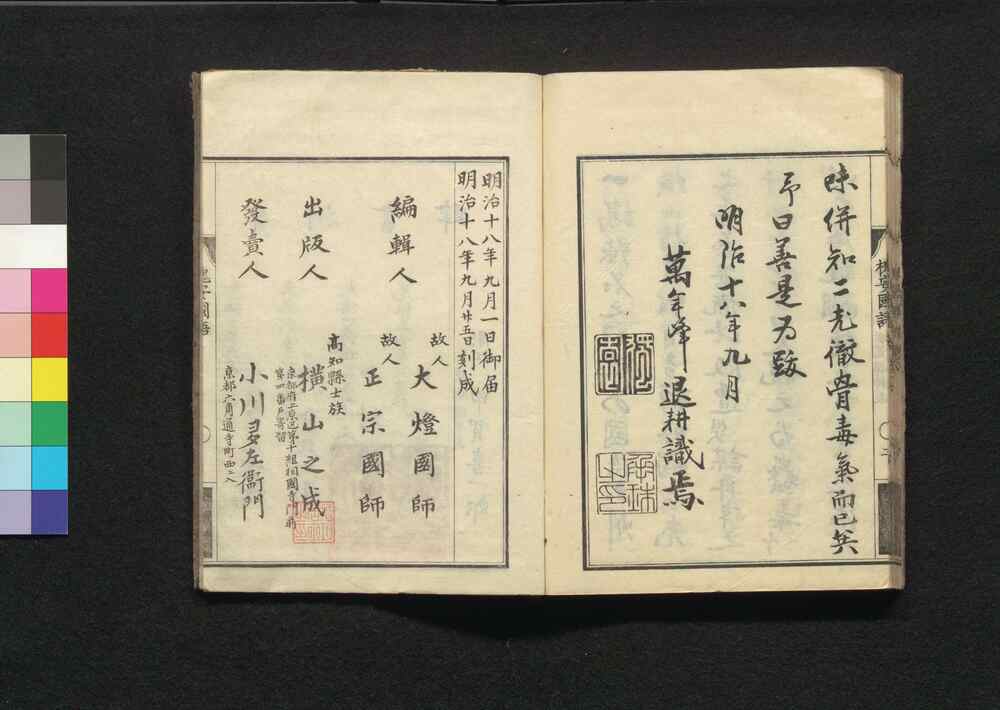 味併知二老徹骨毒氣而已矣
予曰善是为跋
明治十八年九月
萬年峰 退耕識焉
明治十八年九月一日御届
明治十八年九月廿五日刻成
編輯人
故人
大燈國師
故人
正宗國師
出版人
高知縣士族
横山之成
發賣人
京都六角通寺町西ニ入
小川多左衞門